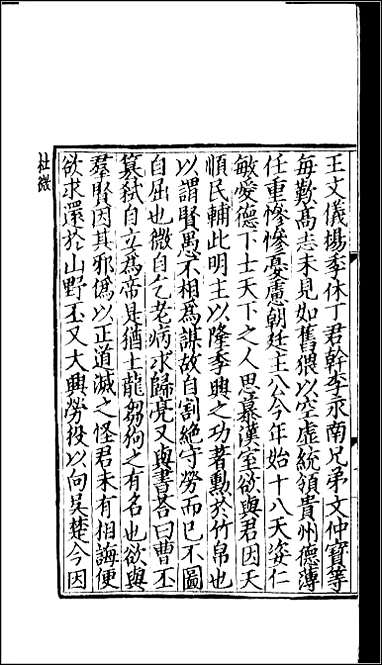 王文儀楊季休丁君幹李永南兄弟文仲寶等
每歎高志未見如舊猥以空虛統領貴州德薄
任重慘慘憂慮朝廷主公今年始十八天姿仁
敏愛德下士天下之人思慕漢室欲與君因天
順民輔此明主以隆季興之功著勲於竹帛也
以謂賢愚不相爲謀故自割絕守勞而已不圖
自屈也微自乞老病求歸亮又與書荅曰曹丕
簒弒自立爲帝是猶土龍芻狗之有名也欲與
羣賢因其邪僞以正道滅之怪君未有相誨便
欲求還於山野丕又大興勞役以向吳楚今因
杜微